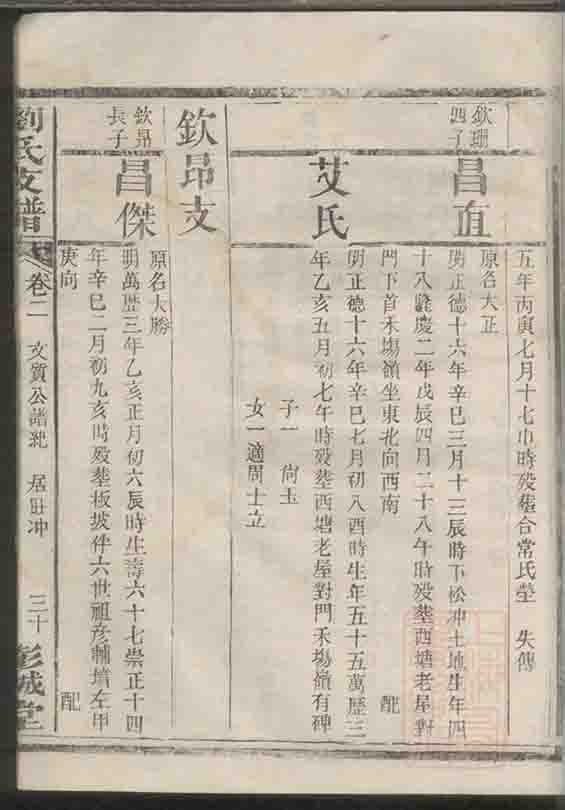 五年丙寅七月十七巾時殁塟合常氏塋 失傳
欽珊
四子
昌直
原名大正
明正德十六年辛巳三月十三辰時下松冲土地生年四
十八隆慶二年戊辰四月二十八午時殁塟西塘老屋對
門下首禾塲嶺坐東北向西南 配
艾氏
明正德十六年辛巳七月初八酉時生年五十五萬歷三
年乙亥五月初七午時殁塟西塘老屋對門禾塲嶺有碑
子一 尙玉
女一適周士立
欽昂支
欽昂
長子
昌傑
原名大勝
明萬歷三年乙亥正月初六辰時生壽六十七崇正十四
年辛巳二月初九亥時殁塟板披伴六世祖彦輔墳左甲
庚向 配
劉氏支譜 卷二 文質公譜 居 冲 三十 彭城堂